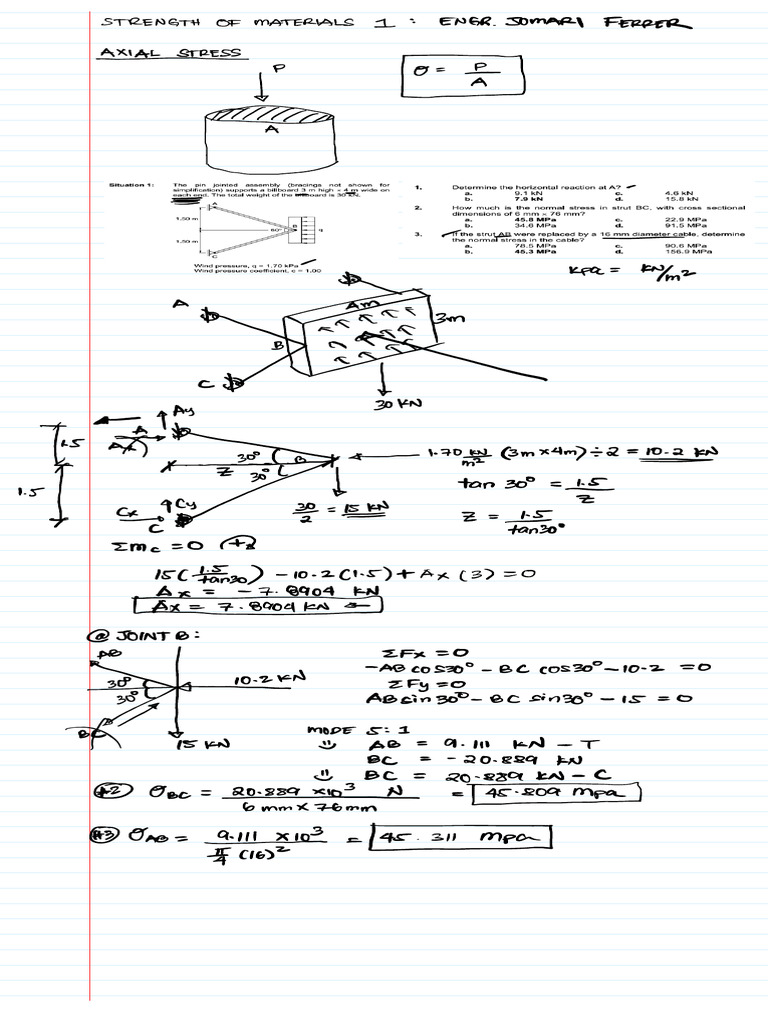 STRENGTH OF MATERIALS 1 : ENGR. JOMARI FERRER
AXIAL STRESS
P
A
σ = P/A
Situation 1: The pin jointed assembly (bracings not shown for
simplification) supports a billboard 3 m high × 4 m wide on
each end. The total weight of the billboard is 30 kN.
A
1.50 m
60°
B
q
1.50 m
C
Wind pressure, q = 1.70 kPa
Wind pressure coefficient, c = 1.00
1. Determine the horizontal reaction at A?
a. 9.1 kN c. 4.6 kN
b. 7.9 kN d. 15.8 kN
2. How much is the normal stress in strut BC, with cross sectional
dimensions of 6 mm × 76 mm?
a. 45.8 MPa c. 22.9 MPa
b. 34.6 MPa d. 91.5 MPa
3. If the strut AB were replaced by a 16 mm diameter cable, determine
the normal stress in the cable?
a. 78.5 MPa c. 90.6 MPa
b. 45.3 MPa d. 156.9 MPa
kPa = kN/m²
A
4m
3m
B
C
30 KN
Ay
A
Ax
1.5
30°
B
Z
30°
1.5
Cy
Cx
C
30/2 = 15 KN
1.70 KN/m² (3m x 4m) ÷ 2 = 10.2 KN
tan 30° = 1.5/Z
Z = 1.5/tan30°
ΣMC = 0 +
15(1.5/tan30) - 10.2(1.5) + Ax(3) = 0
Ax = -7.8904 KN
Ax = 7.8904 KN ←
@ JOINT B:
AB
30°
30°
10.2 KN
BC
15 KN
ΣFx = 0
-AB cos30° - BC cos30° - 10.2 = 0
ΣFy = 0
ABsin30° - BC sin30° - 15 = 0
MODE 5:1
AB = 9.111 KN - T
BC = -20.889 KN
BC = 20.889 KN - C
#2 σBC = 20.889 x10³ N / 6mm x 76mm = 45.809 Mpa
#3 σAB = 9.111 x10³ / π/4 (16)² = 45.311 Mpa